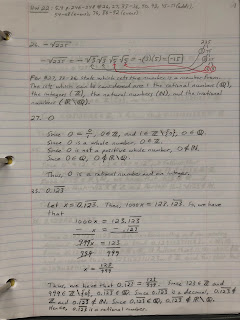 26. -√225
-√225 = -√3·√3·√5·√5 = -(3)(5) = -15
For #27, 33-36 State which sets the number is a number from.
The sets which can be considered are: the rational numbers (ℚ),
the integers (ℤ), the natural numbers (ℕ), and the irrational
numbers (ℝ\ℚ).
27. 0
Since 0 = 0/1, 0∈ℤ, and 1∈ℤ\{0}, 0∈ℚ.
Since 0 is a whole number, 0∈ℤ.
Since 0 is not a positive whole number, 0∉ℕ.
Since 0∈ℚ, 0∉ℝ\ℚ.
Thus, 0 is a rational number and an integer.
Let x = 0.123. Then, 1000x = 123.123. So, we have
that
1000x = 123.123
- x = - .123
999x = 123
999 999
x = 123/999
Thus, we have that 0.123 = 123/999. Since 123∈ℤ and
999∈ℤ\{0}, 0.123∈ℚ. Since 0.123 is a decimal, 0.123∉
ℤ and 0.123∉ℕ. Since 0.123∈ℚ, 0.123∉ℝ\ℚ.
Hence, 0.123 is a rational number.